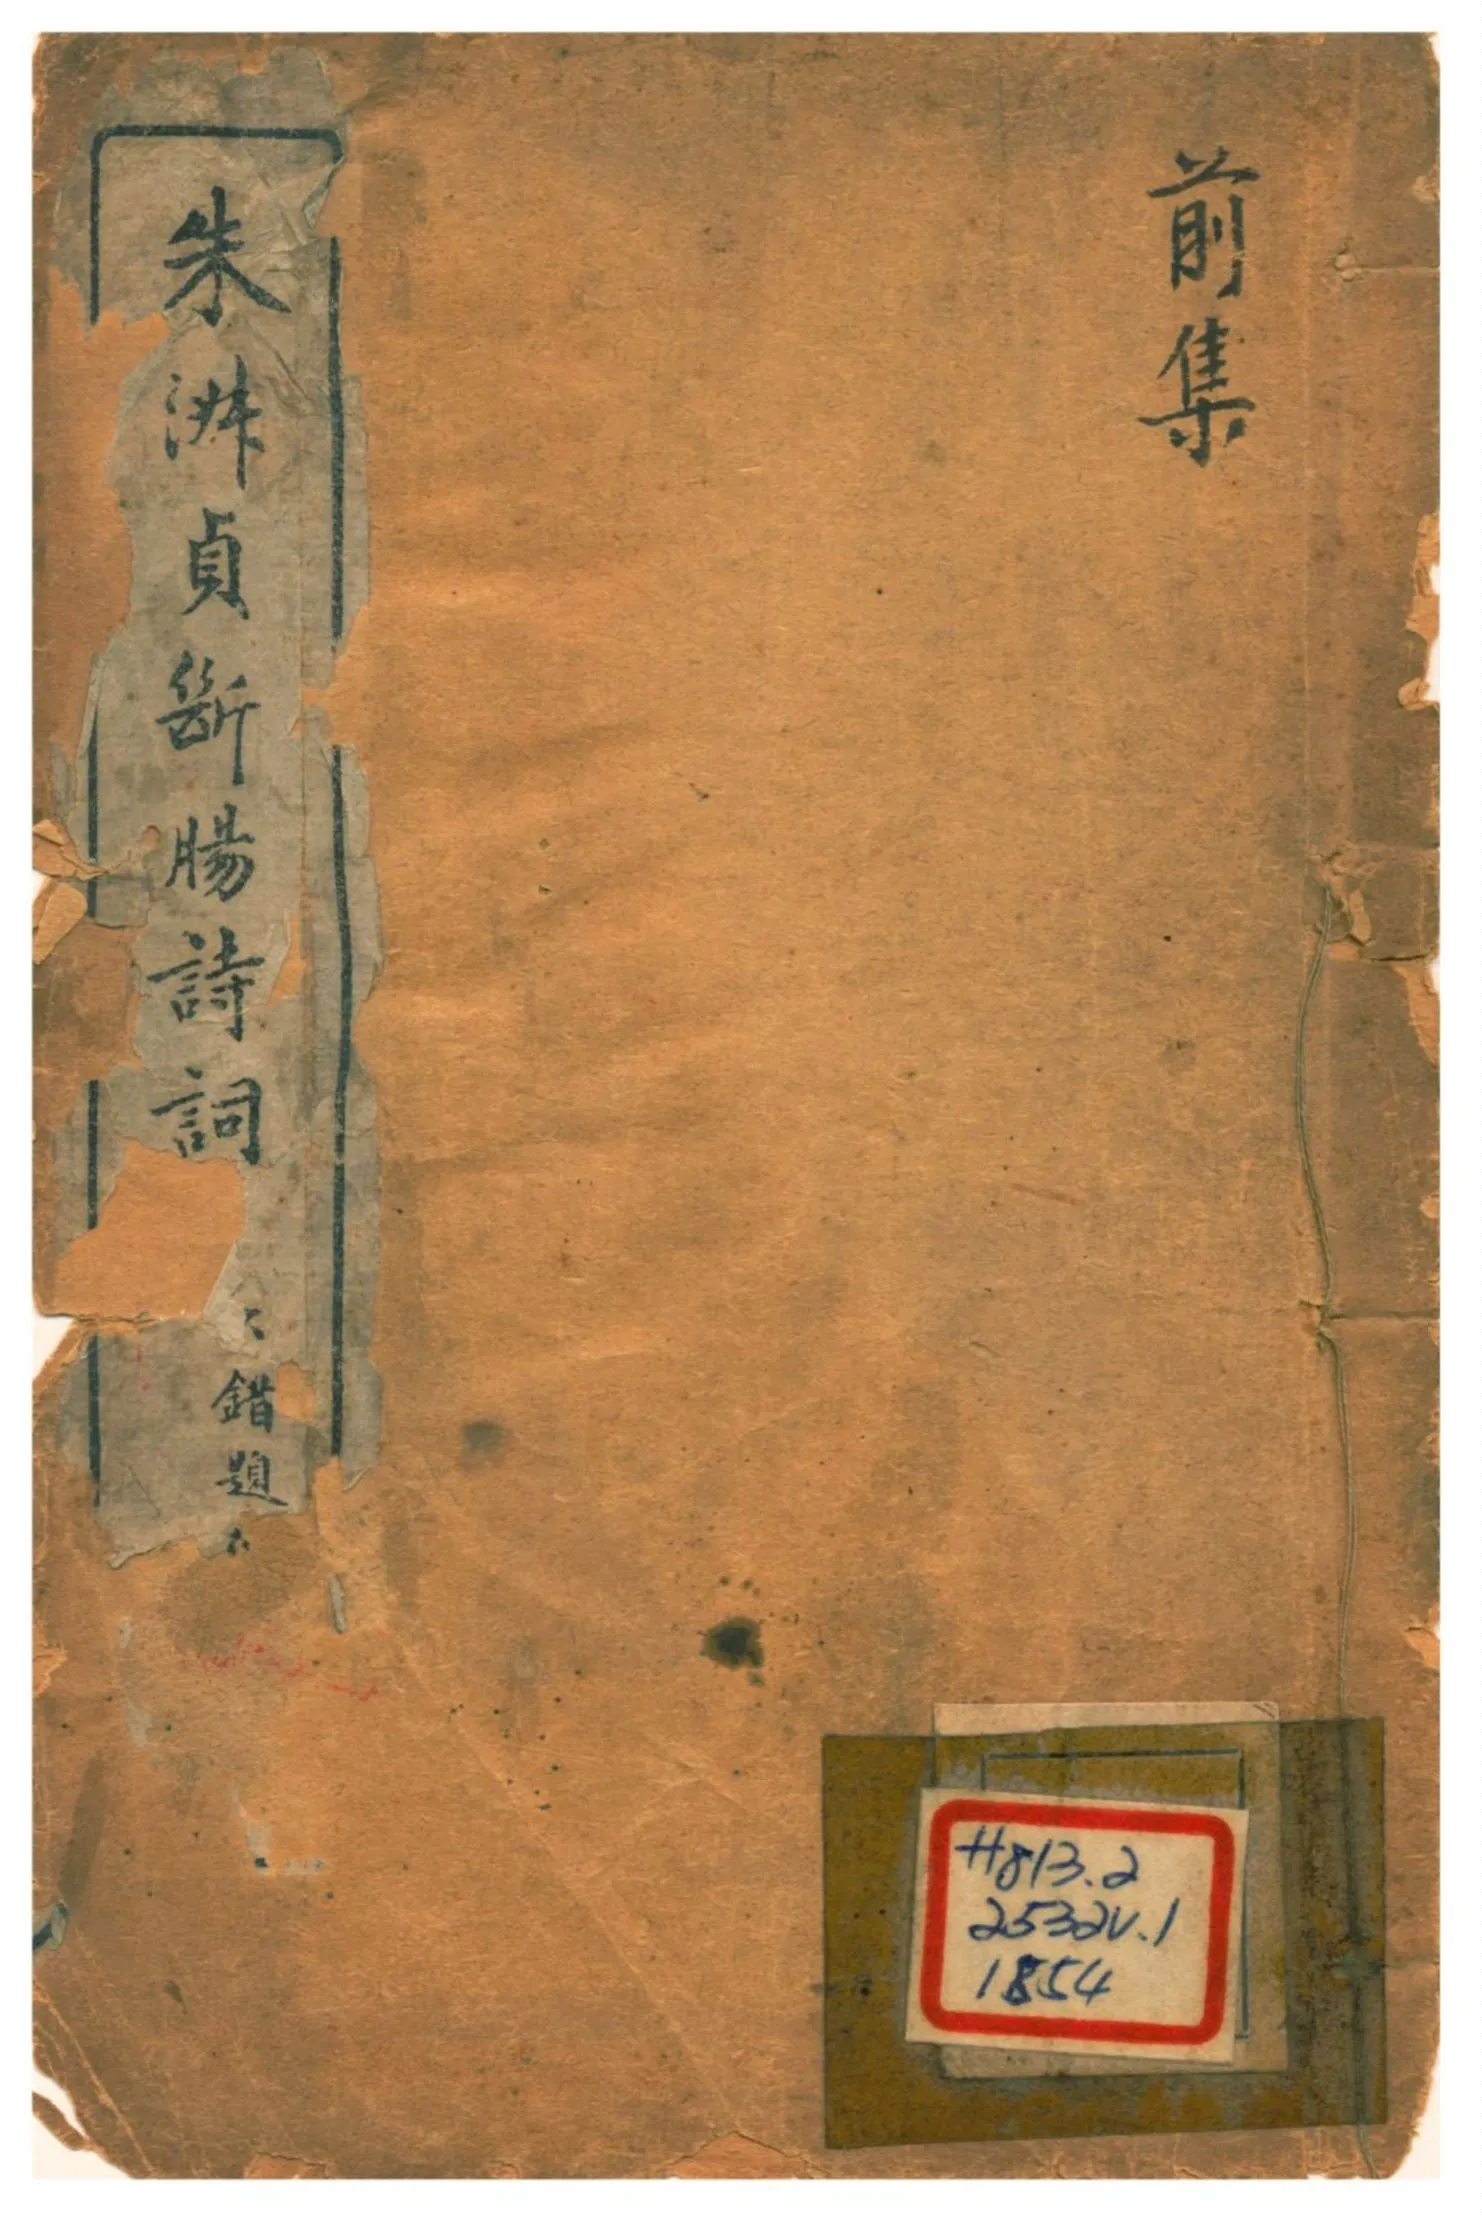 前集
朱淋貞斷腸詩詞
錯題
H813.2
2532V.1
1854